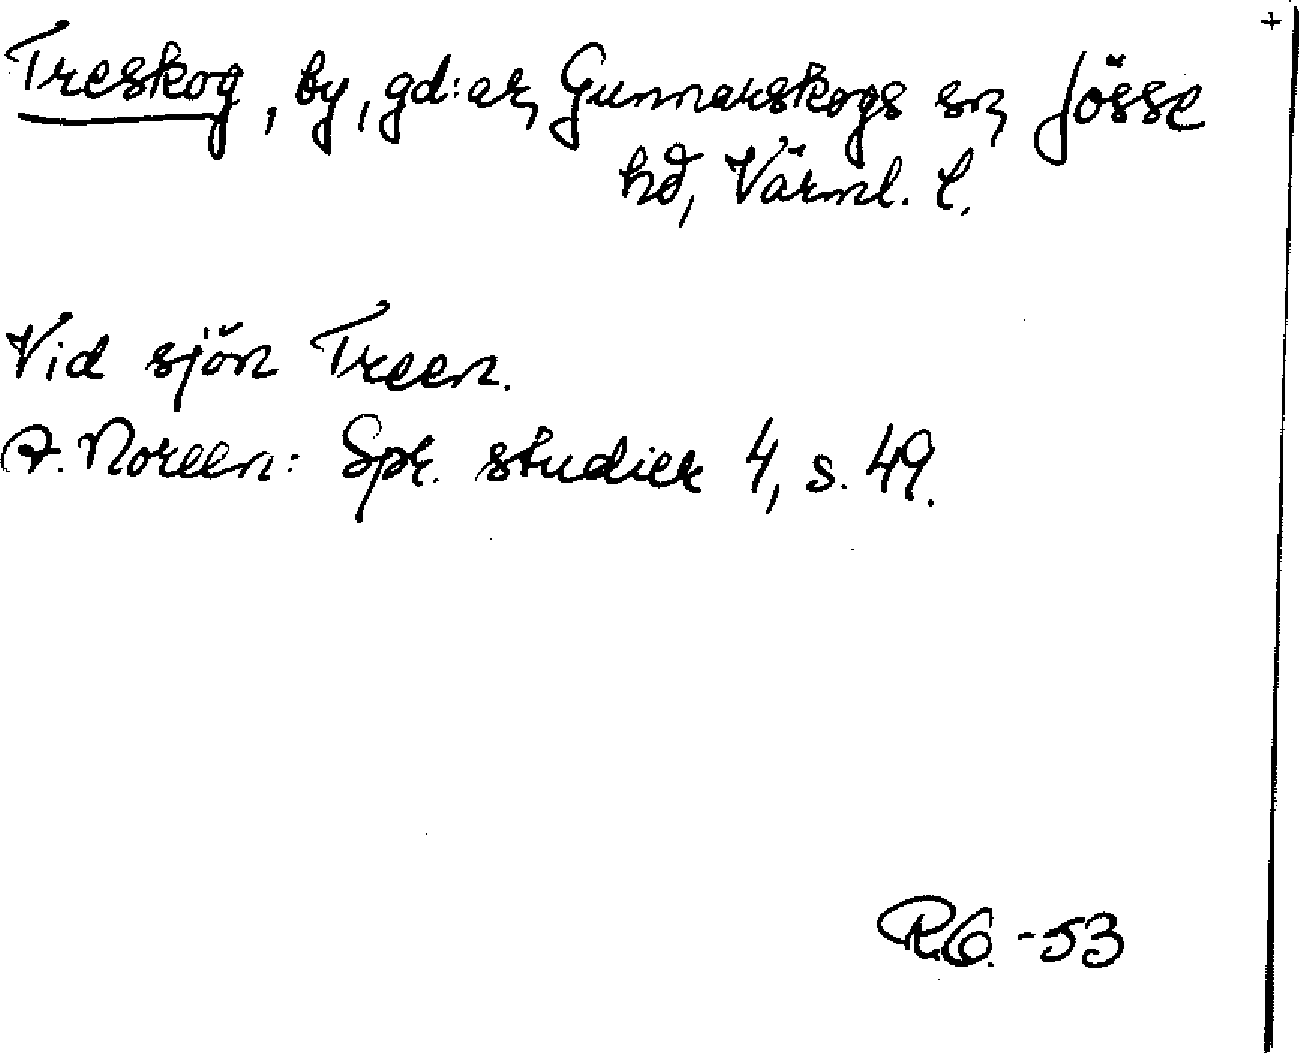 +
Treskog, by, gd:ar, Gunnarskogs sn, Jösse
hd, Värml. l.
Vid sjön Treen.
A. Noreen: Spr. studier 4, s. 49.
R.G. -53